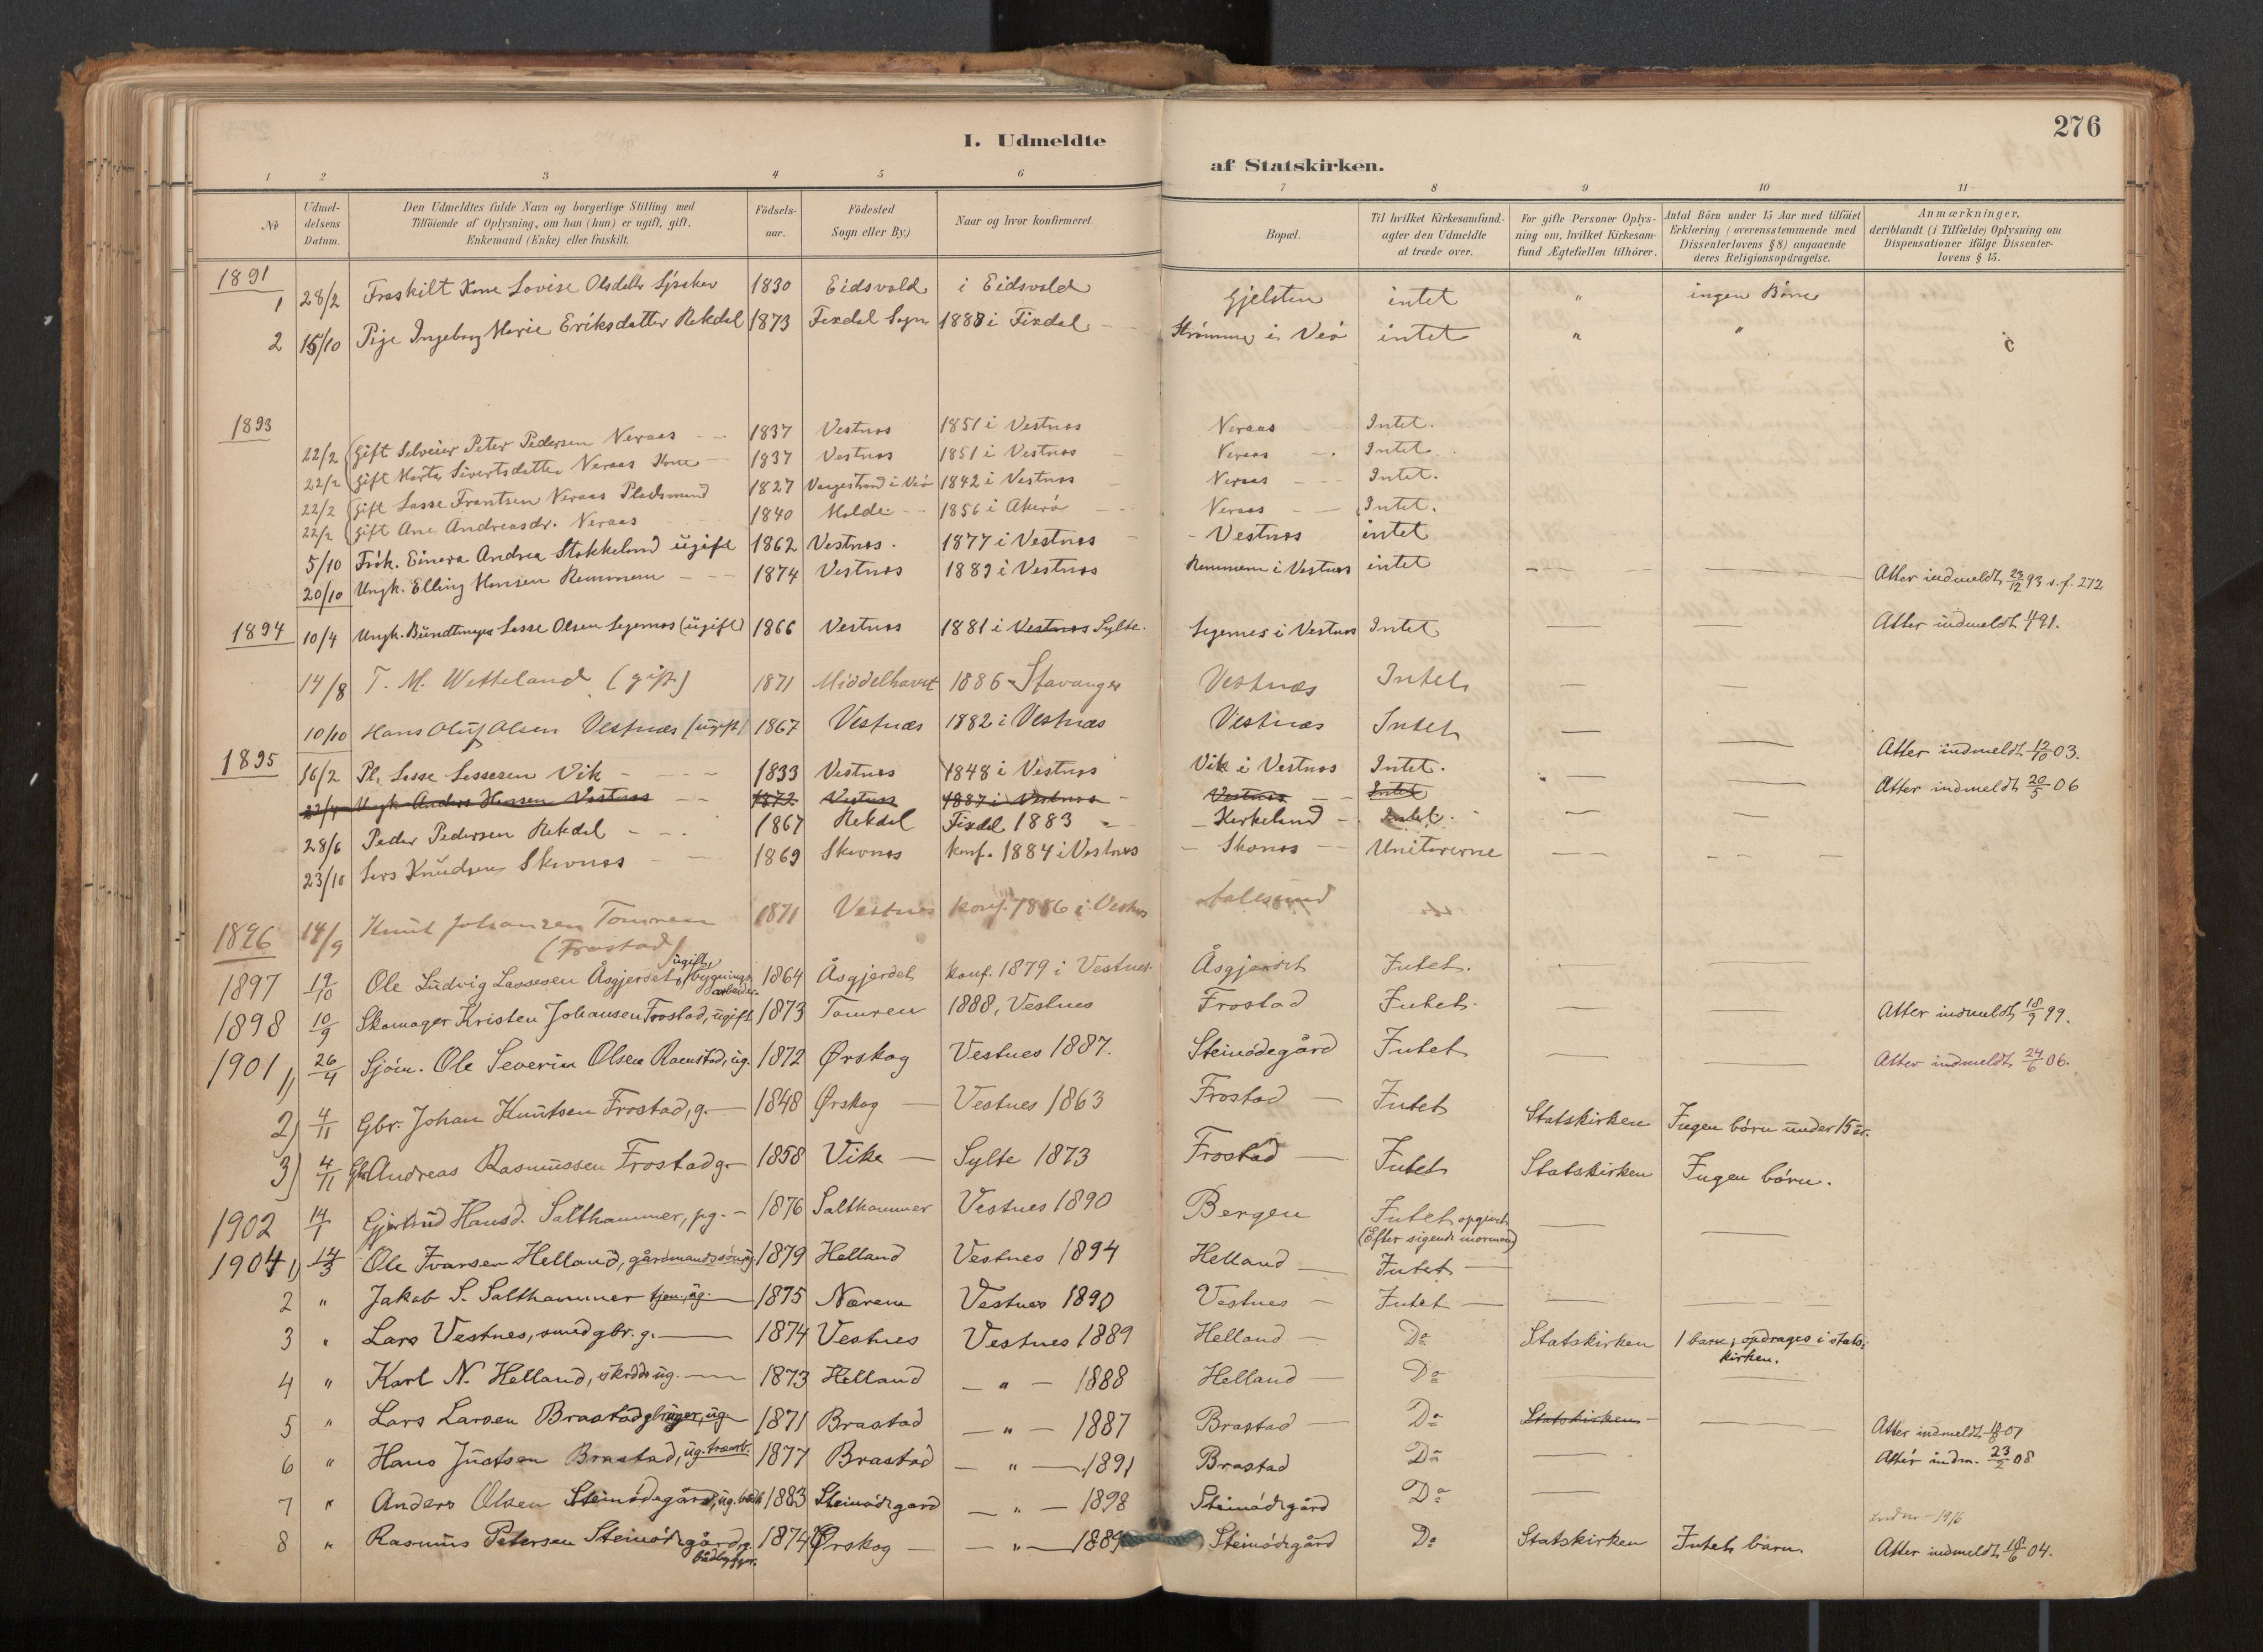 276
I. Udmeldte af Statskirken.
1 2 3 4 5 6 7 8 9 10 11
No
Udmeldelsens Datum.
Den Udmeldtes fulde Navn og borgerlige Stilling med
Tilföiende af Oplysning, om han (hun) er ugift, gift,
Enkemand (Enke) eller fraskilt.
Födselsaar.
Födested
Sogn eller By)
Naar og hvor konfirmeret.
Bopæl.
Til hvilket Kirkesamfund
agter den Udmeldte
at træde over.
For gifte Personer Oplysning
om, hvilket Kirkesamfund
Ægtefællen tilhörer.
Antal Börn under 15 Aar med tilföiet
Erklæring (overensstemmende med
Dissenterlovens § 8) angaaende
deres Religionsopdragelse.
Anmærkninger,
deriblandt (i Tilfælde) Oplysning om
Dispensationer ifölge Dissenterlovens
§ 15.
1891
1 28/2 Fraskilt Kone Lovise Olsdatter 1830 Eidsvold i Eidsvold Gjelsten intet " ingen Børn
2 15/10 Pige Ingeborg Marie Eriksdatter Rekdal 1873 Fixdal Sogn 1888 i Fixdal i Veø intet " "
1893
22/2 Gift Selveier Peter Pedersen Neraas 1837 Vestnes 1851 i Vestnes Neraas Intet.
22/2 Gift Marta Sivertsdatter Neraas Kone 1837 Vestnes 1851 i Vestnes Neraas Intet
22/2 Gift Lasse Frantsen Neraas Pladsmand 1827 Vaagestrand i Veø 1842 i Vestnes Neraas Intet.
22/2 Gift Ane Andreasdr. Neraas 1840 Molde 1856 i Akerø Neraas Intet.
5/10 Frøk. Einera Andrea Stokkeland ugift 1862 Vestnes. 1877 i Vestnes Vestnes intet
20/10 Ungk. Elling Hansen Remmem 1874 Vestnes 1889 i Vestnes Remmem i Vestnes intet Atter indmeldt 23/12 93 s. f. 272
1894 10/4 Ungk. Bundtmager Lasse Olsen Legernes (ugift) 1866 Vestnes 1881 i Vestnes Sylte. Legernes i Vestnes Intet Atter indmeldt
14/8 T. M. Wetteland (gift) 1871 Middelhavet 1886 Stavanger Vestnæs Intet
10/10 Hans Oluf Olsen Vestnæs (ugift) 1867 Vestnæs 1882 i Vestnæs Vestnæs Intet Atter indmeldt 12/10 03.
1895
16/2 Pl. Lasse Lassesen Vik 1833 Vestnes 1848 i Vestnes Vik i Vestnes Intet. Atter indmeldt 20/5 06
Ungk. Anders Hansen Vestnes 1872 Vestnes 1887 i Vestnes Vestnes Intet
28/6 Peder Pedersen Rekdal 1867 Rekdal Fixdal 1883 Kirkeland Intet.
23/10 Lars Knudsen Skornes 1869 Skornes konf. 1884 i Vestnes Skornes Unitarerne
1896 14/9 Knut Johansen Tomren
(Frostad) 1871 Vestnes konf. 1886 i Vestnes Aalesund
1897 19/10 Ole Ludvig Lassesen Åsgjerdet, ugift, bygningsarbeider. 1864 Åsgjerdet konf. 1879 i Vestnes Åsgjerdet Intet.
1898 10/9 Skomager Kristen Johansen Frostad, ugift 1873 Tomren 1888, Vestnes Frostad Intet. Atter indmeldt 18/9 99.
1901 1) 26/4 Sjøm. Ole Severin Olsen Ramstad, ug. 1872 Ørskog Vestnes 1887. Steinødegård Intet Atter indmeldt 24/6 06.
2) 4/11 Gbr. Johan Knutsen Frostad, g. 1848 Ørskog Vestnes 1863 Frostad Intet Statskirken Ingen børn under 15 år.
3) 4/11 Gbr. Andreas Rasmussen Frostad g. 1858 Vike Sylte 1873 Frostad Intet Statskirken Ingen børn.
1902 14/1 Gjertrud Hansd. Salthammer, pg. 1876 Salthammer Vestnes 1890 Bergen Intet opgivet
(Efter sigende mormon)
1904 1) 14/3 Ole Ivarsen Helland, gårdmandssøn, ug 1879 Helland Vestnes 1894 Helland Intet
2 " Jakob S. Salthammer tjen., ug. 1875 Nærem Vestnes 1890 Vestnes Intet
3 " Lars Vestnes, smed gbr. g. 1874 Vestnes Vestnes 1889 Helland Do Statskirken 1 barn; opdrages i statskirken.
4 " Karl N. Helland, skrædd. ug. 1873 Helland " 1888 Helland Do
5 " Lars Larsen Brastad gbruger, ug 1871 Brastad " 1887 Brastad Do Statskirken Atter indmeldt 07
6 " Hans Justsen Brastad, ug. 1877 Brastad " 1891 Brastad Do Atter indm. 23/2 08
7 " Anders Olsen Steinødegård, ug. 1883 Steinødegard " 1898 Steinødegård Do
1916
8 " Rasmus Petersen Steinødegård, g.
bådbygger. 1874 Ørskog " 1889 Steinødegård Do Statskirken Intet barn. Atter indmeldt 18/6 04.